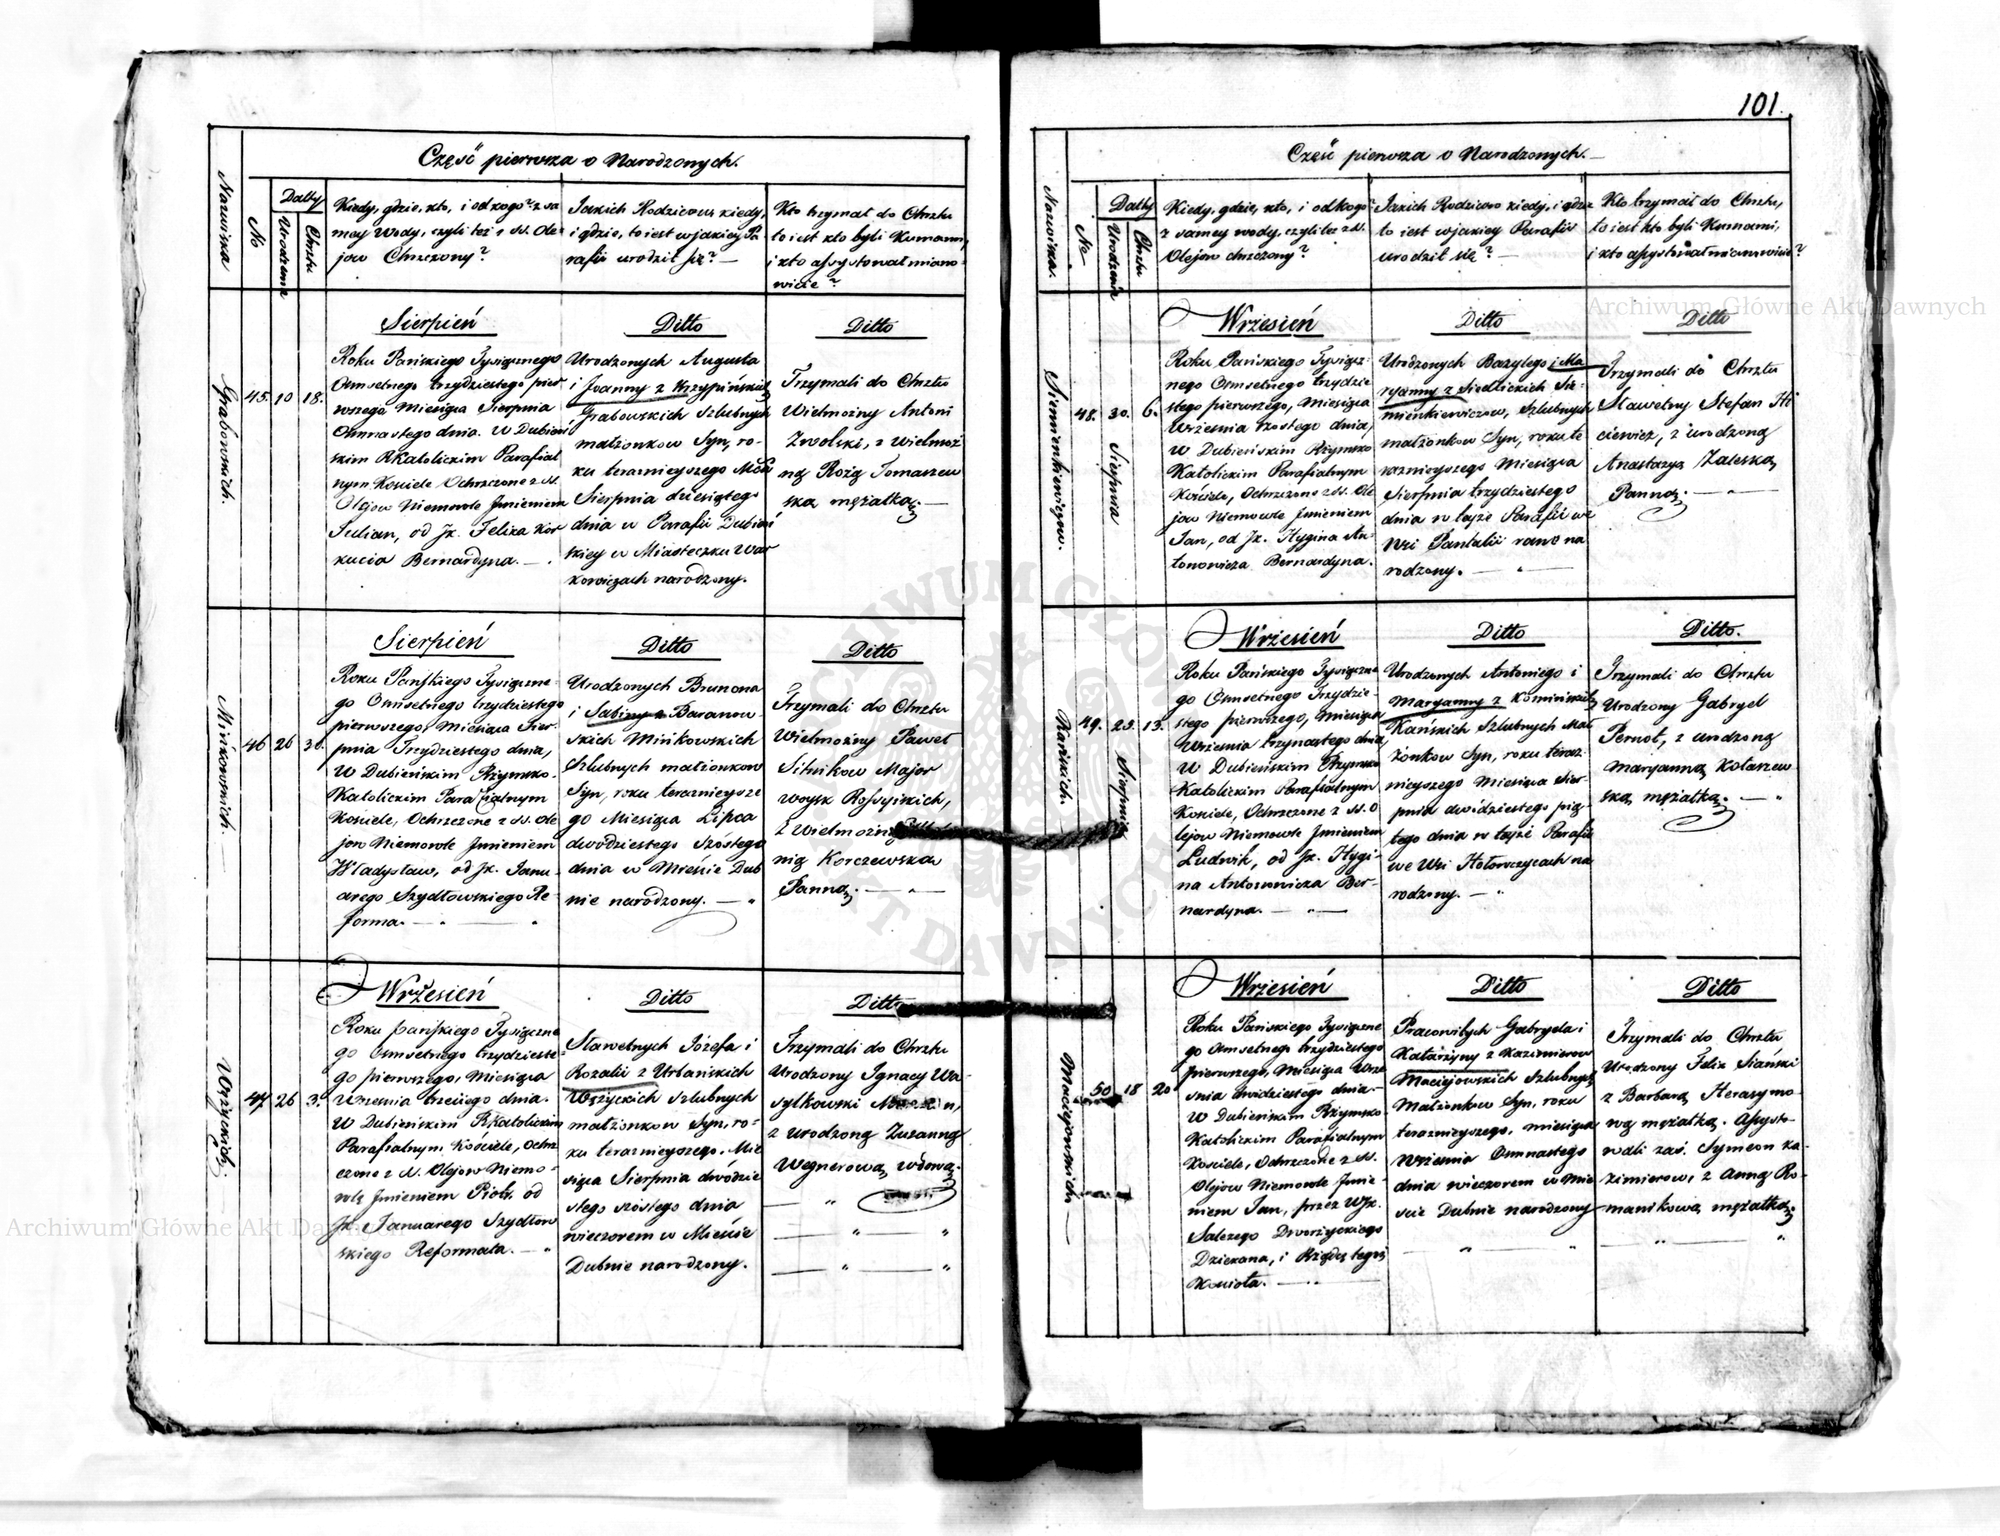 101.
Część pierwsza o Narodzonych.
Nazwiska
No
Datty
Urodzenia
Chrztu
Kiedy, gdzie, kto, i od kogo? z sa
mey Wody, czyli też z SS. Ole-
jow Chrzczony?
Jakich Rodzicow kiedy,
i gdzie, to iest w jakiey Pa
rafii urodził się? —
Kto trzymał do Chrztu
to iest kto byli Kumami,
i kto assystował miano-
wicie?
Grabowskich.
45.
10
18.
Sierpień
Roku Pańskiego Tysiącznego
Osmsetnego trzydziestego pier
wszego Miesiąca Sierpnia
Osmnastego dnia. W Dubień
skim RKatolickim Parafial
nym Kosciele Ochrzczone z SS.
Olejow Niemowle Jmieniem
Julian, od Jx. Felixa Kor
kucia Bernardyna. —
Ditto
Urodzonych Augusta
i Joanny z Krzypińskich
Grabowskich Szlubnych
małżonkow Syn, ro-
ku teraznieyszego Mća
Sierpnia dziesiątego
dnia w Parafii Dubień
skiey w Miasteczku War
kowiczach narodzony.
Ditto
Trzymali do Chrztu
Wielmożny Antoni
Zwolski, z Wielmoż
ną Rożą Tomaszew
ską mężatką. —
Mińkowskich.
46
26
30.
Sierpień
Roku Pańskiego Tysiączne-
go Osmsetnego trzydziestego
pierwszego, Miesiąca Sier-
pnia Trzydziestego dnia,
W Dubieńskim Rżymsko-
Katolickim Parafialnym
Kosciele, Ochrzczone z SS. Ole
jow Niemowle Jmieniem
Władysław, od Jx. Janu-
arego Szydłowskiego Re
forma. —
Ditto
Urodzonych Brunona
i Sabiny z Baranow-
skich Mińkowskich
Szlubnych małżonkow
Syn, roku teraznieysze
go Miesiąca Lipca
dwodziestego Szóstego
dnia w Mieście Dub
nie narodzony. —
Ditto
Trzymali do Chrztu
Wielmożny Paweł
Sitnikow Major
woysk Rossyiskich,
z Wielmożną
nią Korczewską
Panną. —
Wszyckich.
47.
26
3.
Wrżesień
Roku pańskiego Tysiączne
go Osmsetnego trzydzieste
go pierwszego, Miesiąca
Wrzesnia trzeciego dnia.
W Dubieńskim RKatolickim
Parafialnym Kościele, Ochrz
czone z SS. Olejow Niemo-
wlę Jmieniem Piotr, od
Jx. Januarego Szydłow
skiego Reformata. —
Ditto
Sławetnych Józefa i
Rozalii z Urbańskich
Wszyckich szlubnych
małżonkow Syn, ro-
ku teraznieyszego. Mie
siąca Sierpnia dwódzie
stego szóstego dnia
wieczorem w Mieście
Dubnie narodzony.
Ditto
Trzymali do Chrztu
Urodzony Ignacy Wa-
sylkowski
z Urodzoną Zuzanną
Wegnerową wdową.
Część pierwsza o Narodzonych. —
Nazwiska.
No
Datty
Urodzenia
Chrztu
Kiedy, gdzie, kto, i od kogo?
z samey wody, czyli też z SS.
Olejow chrzczony?
Jakich Rodzicow kiedy, i gdzie
to iest w jakiey Parafii
urodził się? —
Kto trzymał do Chrztu,
to iest kto byli Kumami,
i kto assystował mianowicie?
Siemienkiewiczow.
48.
30.
Sierpnia
6.
Wrżesień
Roku Pańskiego Tysiącz-
nego Osmsetnego trzydzie
stego pierwszego, Miesiąca
Wrżesnia szostego dnia,
w Dubieńskim Rżymsko
Katolickim Parafialnym
Kościele, Ochrzczono z SS. Ole
jow Niemowle Jmieniem
Jan, od Jx. Hygina An-
tonowicza Bernardyna.
Ditto
Urodzonych Bazylego i Ma
ryanny z Siedlickich Sie-
mienkiewiczow, Szlubnych
małżonkow Syn, roku te
raznieyszego Miesiąca
Sierpnia trzydziestego
dnia w teyże Parafii we
Wsi Pantalii rano na
rodzony. —
Ditto
Trzymali do Chrztu
Sławetny Stefan
z urodzoną
Anastazyą Zaleską
Panną. —
Kańskich.
49.
25.
Sierpnia
13.
Wrżesień
Roku Pańskiego Tysiączne
go Osmsetnego Trzydzie-
stego pierwszego, Miesiąca
Wrżesnia trzynastego dnia,
W Dubieńskim Rżymsko
Katolickim Parafialnym
Kosciele, Ochrzczone z SS. O
lejow Niemowle Jmieniem
Ludwik, od Jx. Hygi-
na Antonowicza Ber-
nardyna. —
Ditto
Urodzonych Antoniego i
Maryanny z Kominskich
Kańskich Szlubnych Mał
żonkow Syn, roku teraz-
nieyszego Miesiąca Sier-
pnia dwódziestego pią-
tego dnia w teyże Parafii
we Wsi Hołowczycach na
rodzony. —
Ditto.
Trzymali do Chrztu
Urodzony Gabryel
Pernot, z urodzoną
Maryanną Kołaszew
ską mężatką. —
Maciejowskich.
50
18
20
Wrżesień
Roku Pańskiego Tysiączne
go Osmsetnego trzydziestego
pierwszego, Miesiąca Wrze
snia dwódziestego dnia.
W Dubieńskim Rżymsko-
Katolickim Parafialnym
Kosciele, Ochrzczone z SS.
Olejow Niemowle Jmie-
niem Jan, przez WJx.
Salezego Dworżyckiego
Dziekana, i Rządcę tegoż
Koscioła. —
Ditto
Pracowitych Gabryela i
Katarżyny z Kazimierow
Maciejowskich Szlubnych
Małżonkow Syn, roku
teraznieyszego, miesiąca
Wrżesnia Osmnastego
dnia wieczorem w Mie
scie Dubnie narodzony
Ditto
Trzymali do Chrztu
Urodzony Felix Siański
z Barbarą Herasymo-
wą mężatką. Assysto-
wali zaś, Symeon Ka-
zimierow, z Anną Ro-
manikową mężatką.
Archiwum Główne Akt Dawnych
Archiwum Główne Akt Dawnych
ARCHIWUM GŁÓWNE AKT DAWNYCH